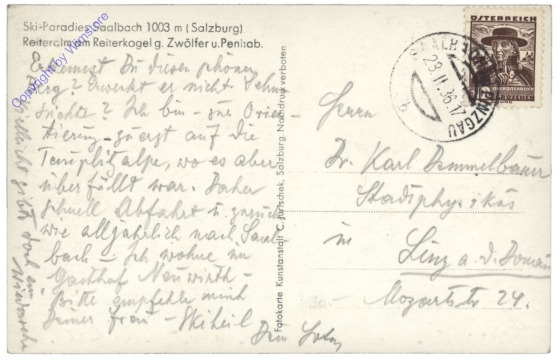 Ski-Paradies Saalbach 1003 m (Salzburg)
Reiteralm am Reiterkogel g. Zwölfer u. Penhab.
Copyright by Wamstore
Erkennst Du diesen schönen
Berg? Erweckt er nicht Sehn-
süchte? Ich bin - zur Orien-
tierung - zuerst auf die
wo es aber
überfüllt war. Daher
schnell Abfahrt u. zurück
wie alljährlich nach Saal-
bach - Ich wohne im
Gasthof Neuwirth -
Bitte empfehle mich
Deiner Frau - Skiheil
Dein
Vielleicht gibts doch ein
Fotokarte Kunstanstalt C. Jurischek, Salzburg Nachdruck verboten
ÖSTERREICH
SAALBACH IM PINZGAU
23.II.36.17
Herrn
Dr. Karl
Stadtphysikus
in
Linz a. d. Donau
Mozartstr 24.